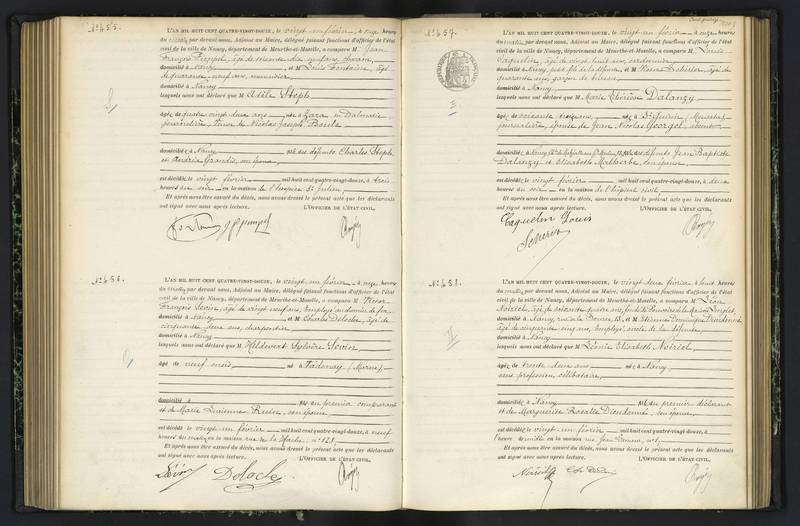 N° 455.
L'AN MIL HUIT CENT QUATRE-VINGT-DOUZE, le vingt un février à onze heures
du matin, par devant nous, Adjoint au Maire, délégué faisant fonctions d'officier de l'état
civil de la ville de Nancy, département de Meurthe-et-Moselle, a comparu M Jean
François Pierpol, âgé de soixante dix neuf ans,
domicilié à Nancy et M Louis Fontaine, âgé
de quarante neuf ans, menuisier
domicilié à Nancy
lesquels nous ont déclaré que M Adèle Steph
âgée de quatre vingt deux ans née à Zara, en Dalmatie
journalière, veuve de Nicolas Joseph Boule
domiciliée à Nancy fille des défunts Charles Steph
et Andréa Grandis, son épouse
est décédée le vingt février mil huit cent quatre-vingt-douze, à trois
heures du soir en la maison de l'hospice St Julien
Et après nous être assuré du décès, nous avons dressé le présent acte que les déclarants
ont signé avec nous après lecture. L'OFFICIER DE L'ÉTAT CIVIL,
N° 456.
L'AN MIL HUIT CENT QUATRE-VINGT-DOUZE, le vingt un février à onze heures
du matin, par devant nous, Adjoint au Maire, délégué faisant fonctions d'officier de l'état
civil de la ville de Nancy, département de Meurthe-et-Moselle, a comparu M Victor
François Sevin, âgé de vingt neuf ans, employé au chemin de fer
domicilié à Nancy et M Charles Deloche, âgé de
cinquante deux ans, charpentier
domicilié à Nancy
lesquels nous ont déclaré que M Hildevert Sylvère Sevin
âgé de neuf mois né à (Marne)
domicilié à fils au premier comparant
et de Marie Lucienne son épouse
est décédé le vingt un février mil huit cent quatre-vingt-douze, à neuf
heures du matin en la maison rue n° 128
Et après nous être assuré du décès, nous avons dressé le présent acte que les déclarants
ont signé avec nous après lecture. L'OFFICIER DE L'ÉTAT CIVIL,
Deloche
N° 457.
L'AN MIL HUIT CENT QUATRE-VINGT-DOUZE, le vingt un février à onze heures
du matin, par devant nous, Adjoint au Maire, délégué faisant fonctions d'officier de l'état
civil de la ville de Nancy, département de Meurthe-et-Moselle, a comparu M Louis
Caquelin, âgé de vingt huit ans, cordonnier
domicilié à Nancy, petit fils de la défunte et M Victor Scherier, âgé de
quarante ans, garçon de bureau
domicilié à Nancy
lesquels nous ont déclaré que M Marie Thérèse Dalanzy
âgée de soixante treize ans née à St Quirin (Meurthe)
journalière, épouse de Jean Nicolas Georgel, absent
domiciliée à Nancy fille des défunts Jean Baptiste
Dalanzy et Elisabeth Malherbe, son épouse
est décédée le vingt février mil huit cent quatre-vingt-douze, à deux
heures du soir en la maison de l'hôpital civil
Et après nous être assuré du décès, nous avons dressé le présent acte que les déclarants
ont signé avec nous après lecture. L'OFFICIER DE L'ÉTAT CIVIL,
Caquelin Louis
N° 458.
L'AN MIL HUIT CENT QUATRE-VINGT-DOUZE, le vingt deux février à huit heures
du matin, par devant nous, Adjoint au Maire, délégué faisant fonctions d'officier de l'état
civil de la ville de Nancy, département de Meurthe-et-Moselle, a comparu M Léon
Noiriel, âgé de soixante quatre ans,
domicilié à Nancy, et M Etienne Dominique Dieudonné
âgé de cinquante cinq ans, employé, oncle de la défunte
domicilié à Nancy
lesquels nous ont déclaré que M Léonie Elisabeth Noiriel
âgée de trente deux ans née à Nancy
sans profession, célibataire
domiciliée à Nancy fille au premier déclarant
et de Marguerite Rosalie Dieudonné, son épouse
est décédée le vingt un février mil huit cent quatre-vingt-douze, à
heure en la maison rue
Et après nous être assuré du décès, nous avons dressé le présent acte que les déclarants
ont signé avec nous après lecture. L'OFFICIER DE L'ÉTAT CIVIL,